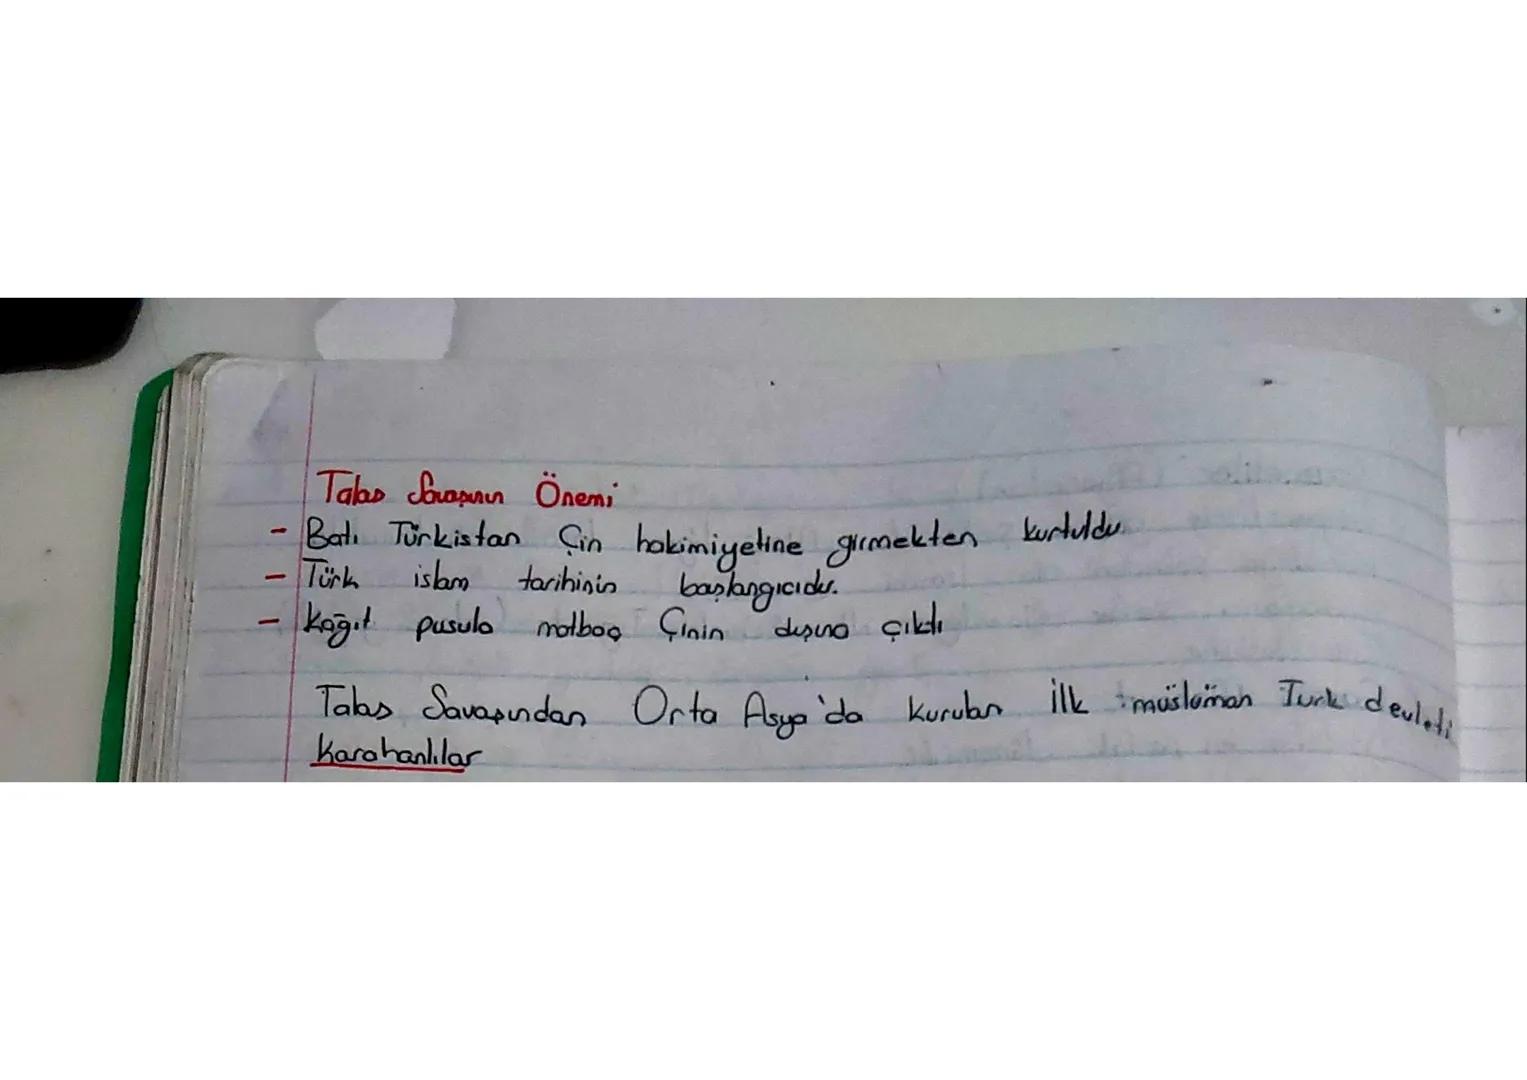 Talas Savaşının Önemi
- Batı Türkistan Çin hakimiyetine girmekten kurtuldu.
- Türk islam tarihinin başlangıcıdır.
- Kağıt pusula matbaa Çinin dışına çıktı
Talas Savaşından Orta Asya'da kurulan İlk müslüman Türk devleti
Karahanlılar